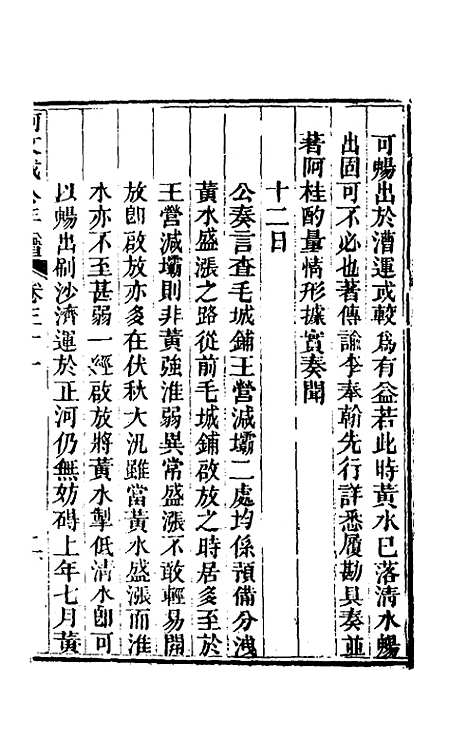 可暢出於漕運或較爲有益若此時黃水已落清水暢
出固可不必也著傳諭李奉翰先行詳悉履勘具奏並
著阿桂酌量情形據實奏聞
十二日
公奏言查毛城鋪王營減壩二處均係預備分洩
黃水盛漲之路從前毛城鋪啟放之時居多至於
王營減壩則非黃強淮弱異常盛漲不敢輕易開
放卽啟放亦多在伏秋大汛雖當黃水盛漲而淮
水亦不至甚弱一經啟放將黃水掣低清水卽可
以暢出刷沙濟運於正河仍無妨碍上年七月黃
阿文成公年譜 卷三十一 二